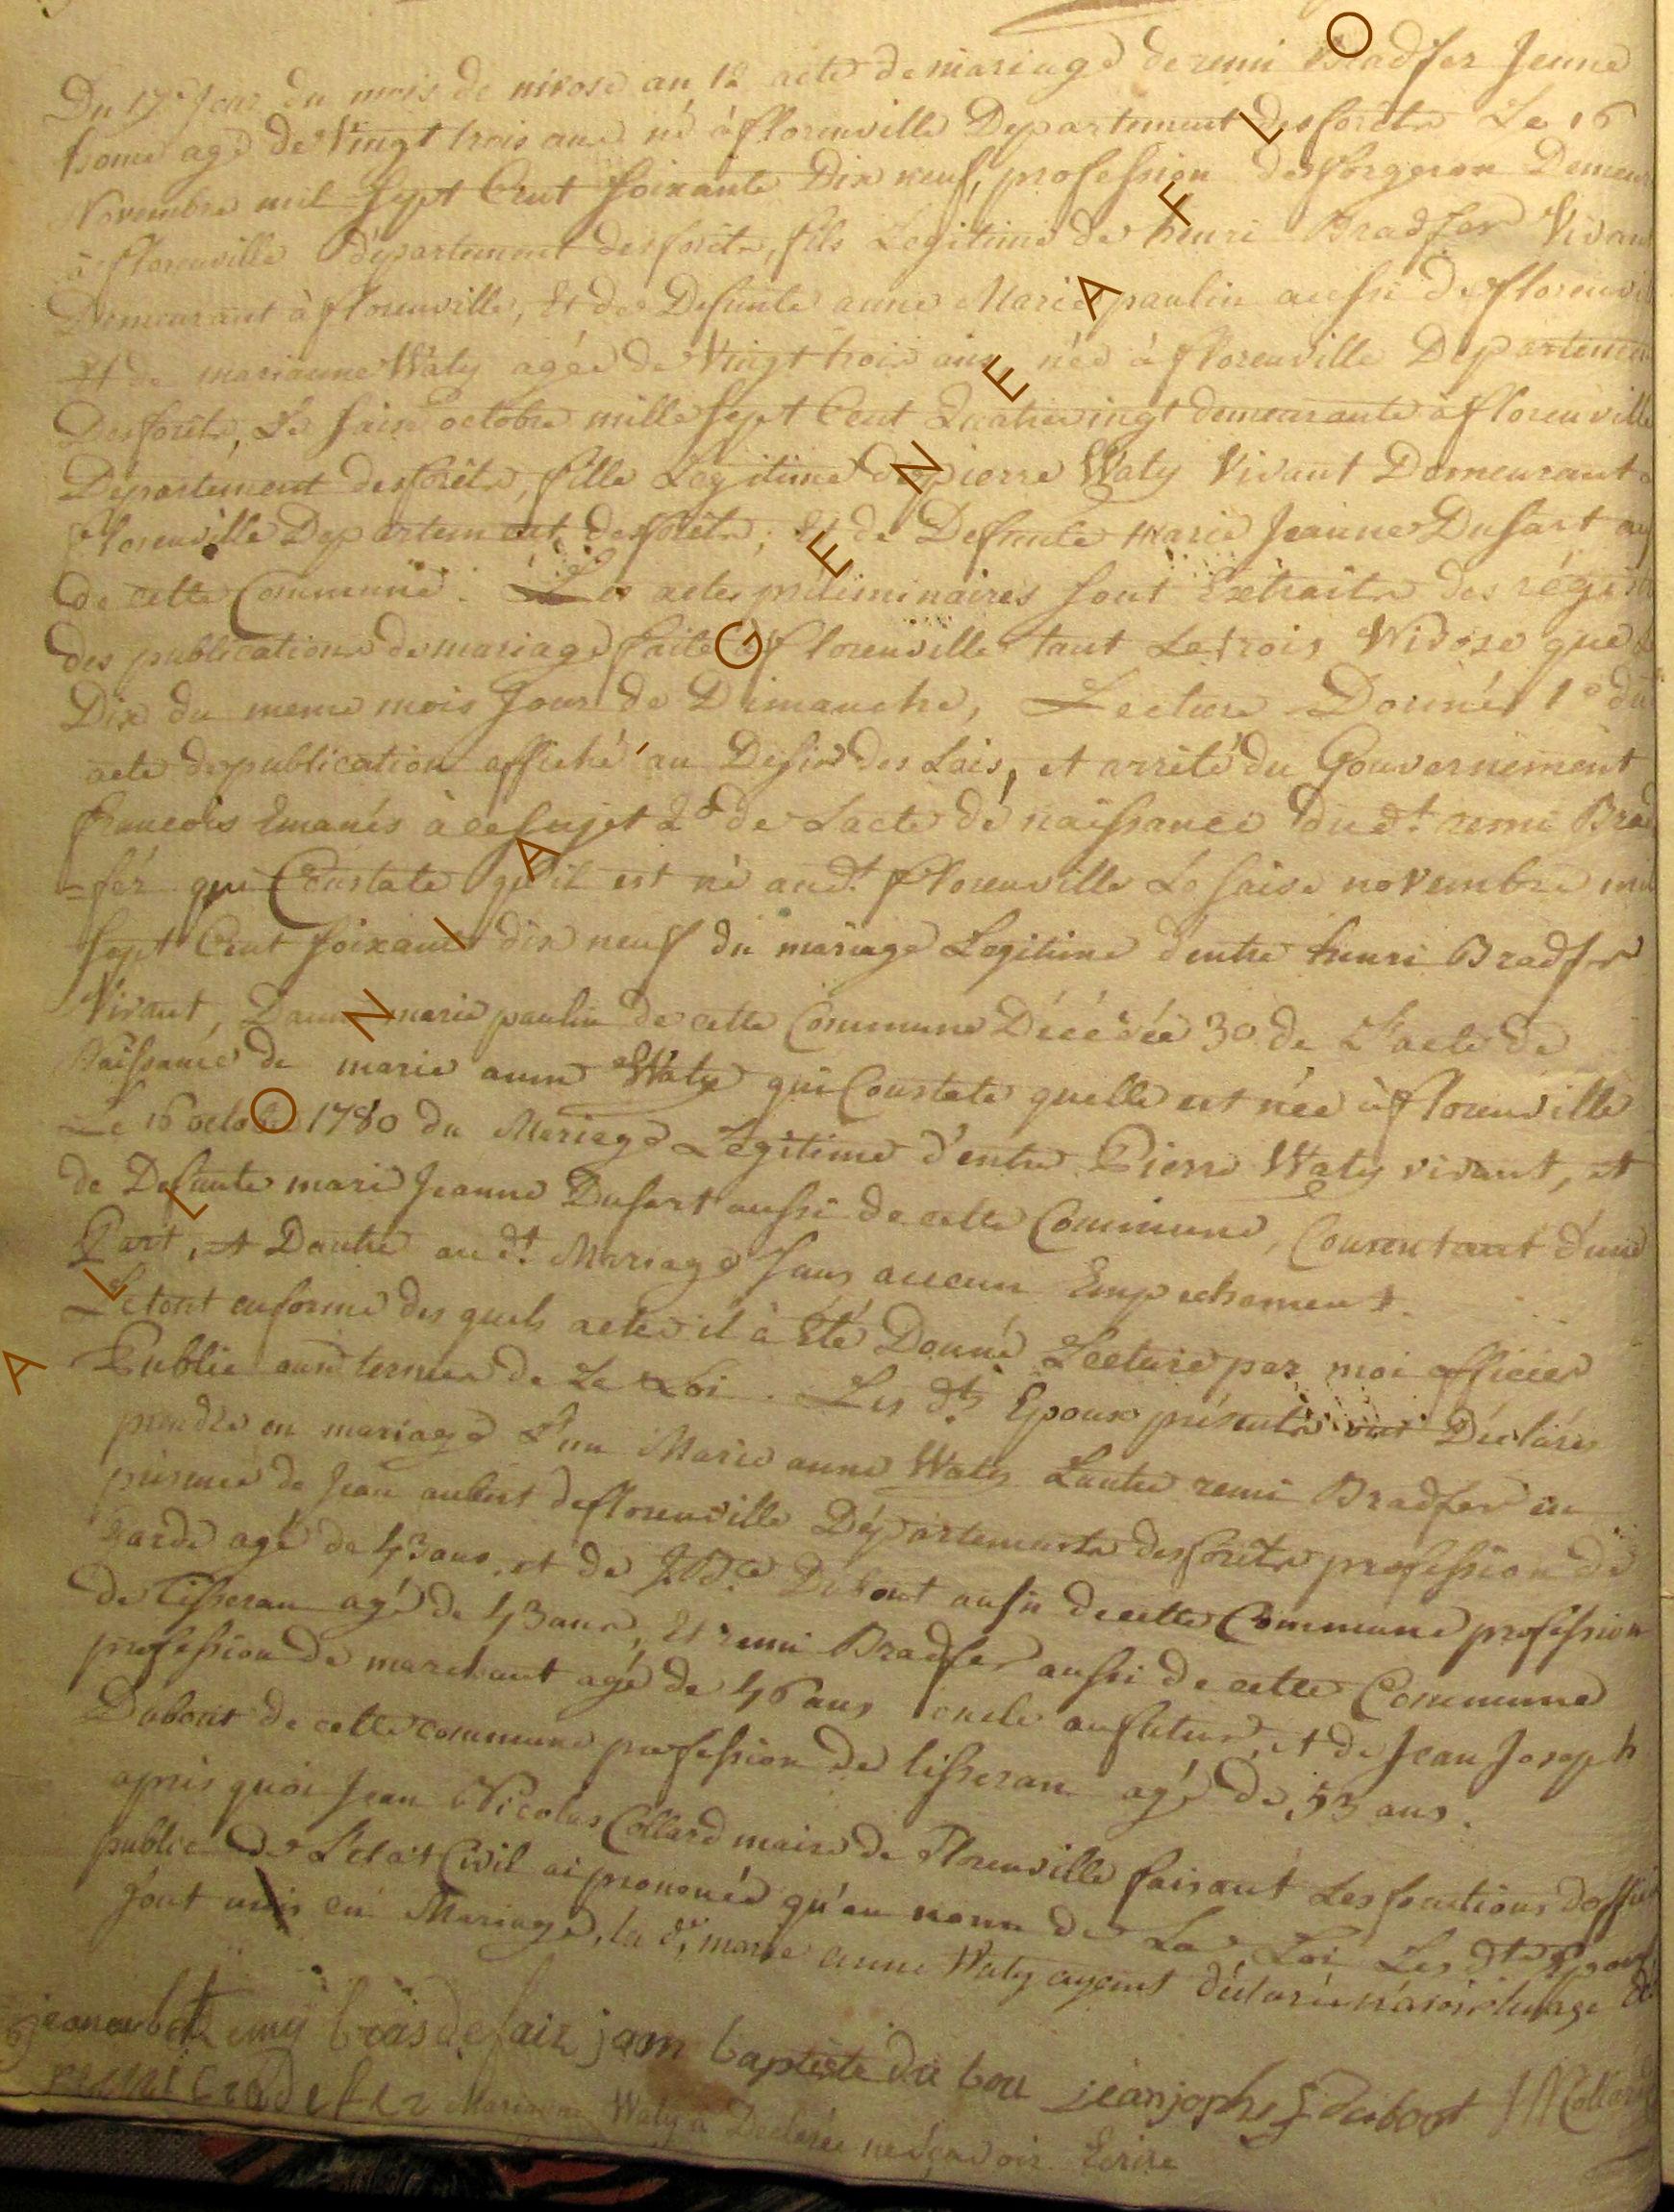 Du 17e Jour du mois de nivose an 12 acte de mariage de remi Bradfer Jeune
home agé de Vingt trois ans né à florenville Departement desforêts Le 16
Novembre mil Sept Cent Soixante Dix neuf, profession de forgeron Demeur
à florenville département desforêts, fils Legitime de henri Bradfer Vivant
Demeurant à florenville, Et de Defunte anne Marie paulin aussi de florenvil
Et de marianne Waty agée de Vingt trois ans née à florenville Departemen
Desforêts, Le saise octobre mille Sept Cent Quatrevingt demeurante à florenville
Departement desforêts, fille Legitime de pierre Waty Vivant Demeurant à
florenville Departement desforêts; Et de Defunte marie Jeanne Dufart au
de cette Commune. Les actes préliminaires sont Extraits des régist
des publications de mariage faite à florenville tant Le trois Nivose que Le
Dix du meme mois Jour de Dimanche, Lecture Donnés 1º du
acte de publication affiché au Desir des Lois, et arrêté du Gouvernement
francois Emanés à ce Sujet 2º de Lacte de naissance dudt. remi Brad
-fer qui Constate qu'il est né audt. florenville Le saise novembre mil
Sept Cent Soixante dix neuf du mariage Legitime d'entre henri Bradfer
Vivant, Danne marie paulin de cette Commune Décédée 3º de L'acte de
Naissance de marie anne Waty qui Constate quelle est née à florenville
Le 16 octobre 1780 du Mariage Legitime d'entre Pierre Waty vivant, et
de Defunte marie Jeanne Dufart aussi de cette Commune, Consentant d'une
Part, et Dautre au dt. Mariage Sans aucun Empechement.
Le tout en forme des quels actes il à Été Donné Lecture par moi officier
Public aux termes de La Loi. Les dts Epoux présents ont Déclarés
prendre en mariage L'un Marie anne Waty Lautre remi Bradfer en
présence de Jean aubert de florenville Départements desforêts profession de
Garde agé de 43 ans, et de J. Bte Dubout aussi de cette Commune profession
de Tisseran agé de 43 ans, Et remi Bradfer aussi de cette Commune
profession de marchant agé de 46 ans oncle au futur, et de Jean Joseph
Dubout de cette commune profession de tisseran agé de 53 ans.
apris quoi Jean Nicolas Collard maire de Florenville faisant Les fonctions doffici
public de L'etat Civil ai prononcé qu'au nom de La Loi Les dts Epoux
sont unis en Mariage, la de. marie anne Waty ayant déclarée
jean aubert remy bras de fair jean baptiste du bou jean joph Dubout JNCollard
remi bradefer Marianne Waty a Declarée ne Scavoir Ecrire
ALLONIAGENEAFLO